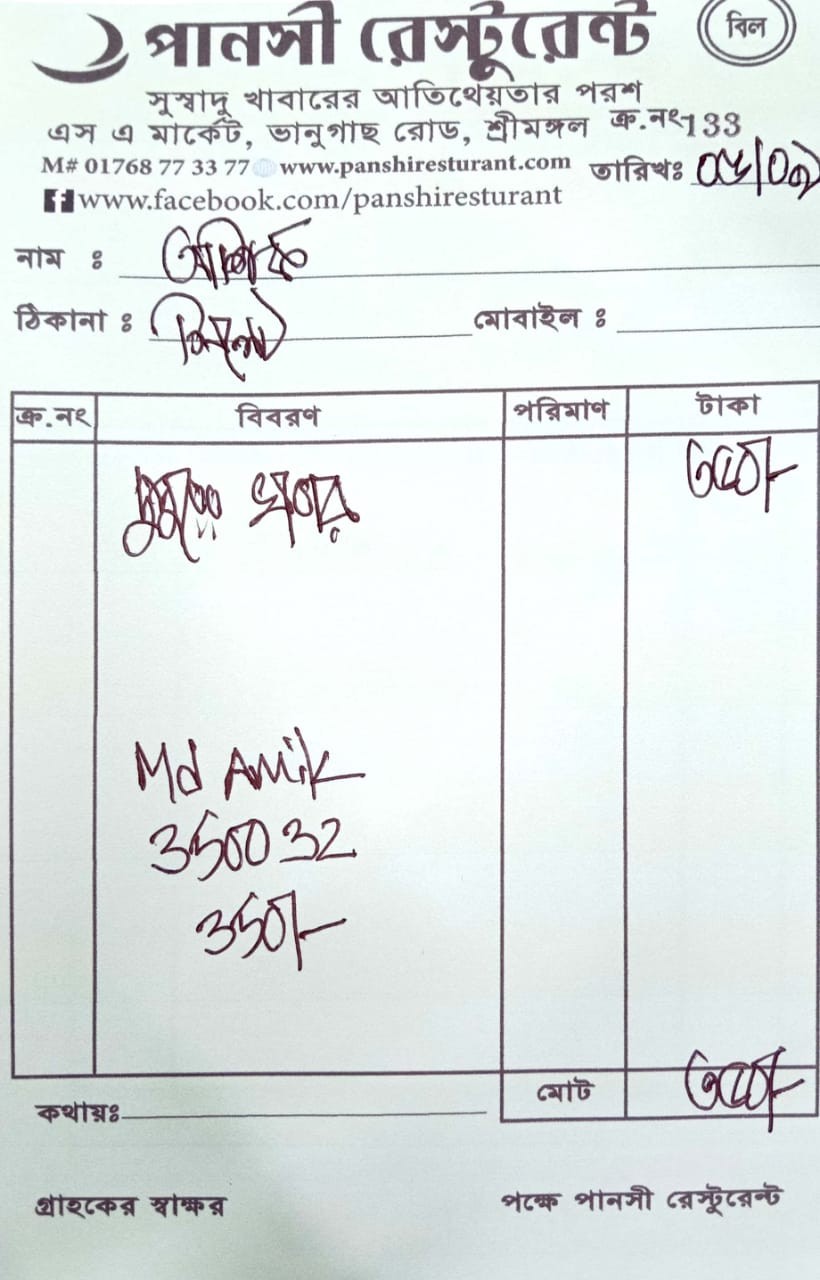 পানসী রেস্টুরেন্ট
বিল
সুস্বাদু খাবারের আতিথেয়তার পরশ
এস এ মার্কেট, ভানুগাছ রোড, শ্রীমঙ্গল ক্র.নং 133
M# 01768 77 33 77 www.panshiresturant.com তারিখঃ
www.facebook.com/panshiresturant
নাম ঃ
ঠিকানা ঃ মোবাইল ঃ
ক্র.নং বিবরণ পরিমাণ টাকা
দুপুরের খাবার ৩৫০/-
Md Amik
350032
350/-
মোট ৩৫০/-
কথায়ঃ
গ্রাহকের স্বাক্ষর পক্ষে পানসী রেস্টুরেন্ট